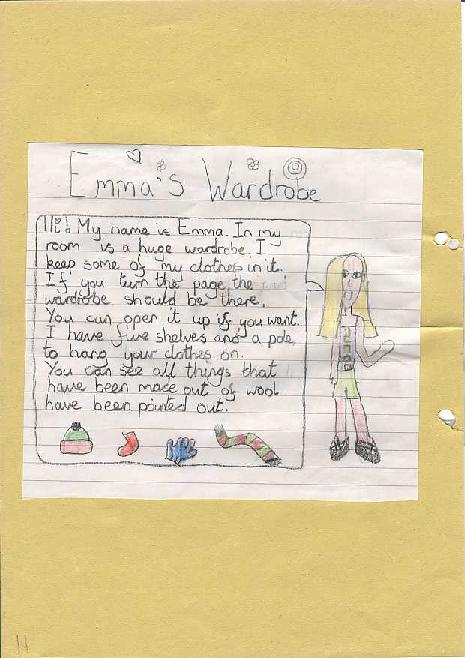 Emma's Wardrobe
Hi! My name is Emma. In my
room is a huge wardrobe. I
keep some of my clothes in it.
If you turn the page, the
wardrobe should be there.
You can open it up if you want.
I have five shelves and a pole,
to hang your clothes on.
You can see all things that
have been made out of wool
have been pointed out.